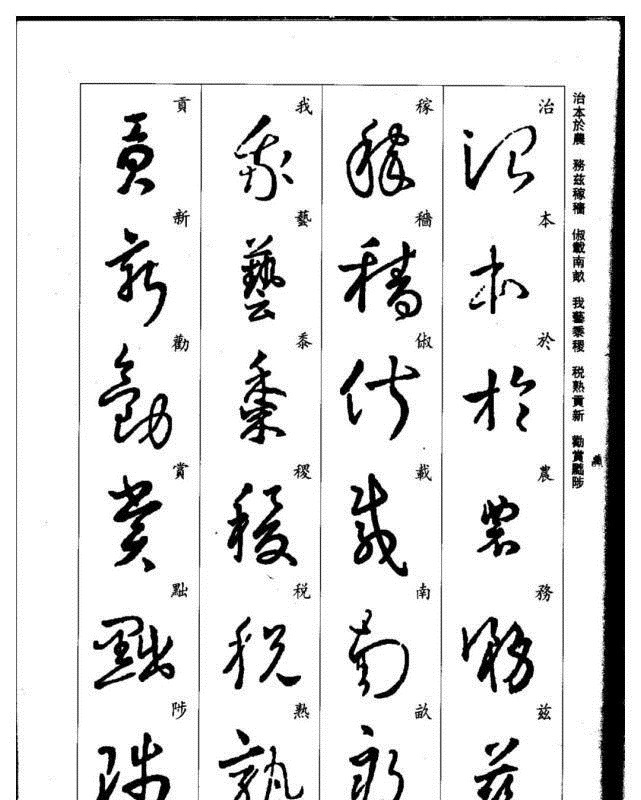 治本於農　務茲稼穡　俶載南畝　我藝黍稷　税熟貢新　勸賞黜陟
治本於農務茲
稼穡俶載南畝
我藝黍稷税熟
貢新勸賞黜陟